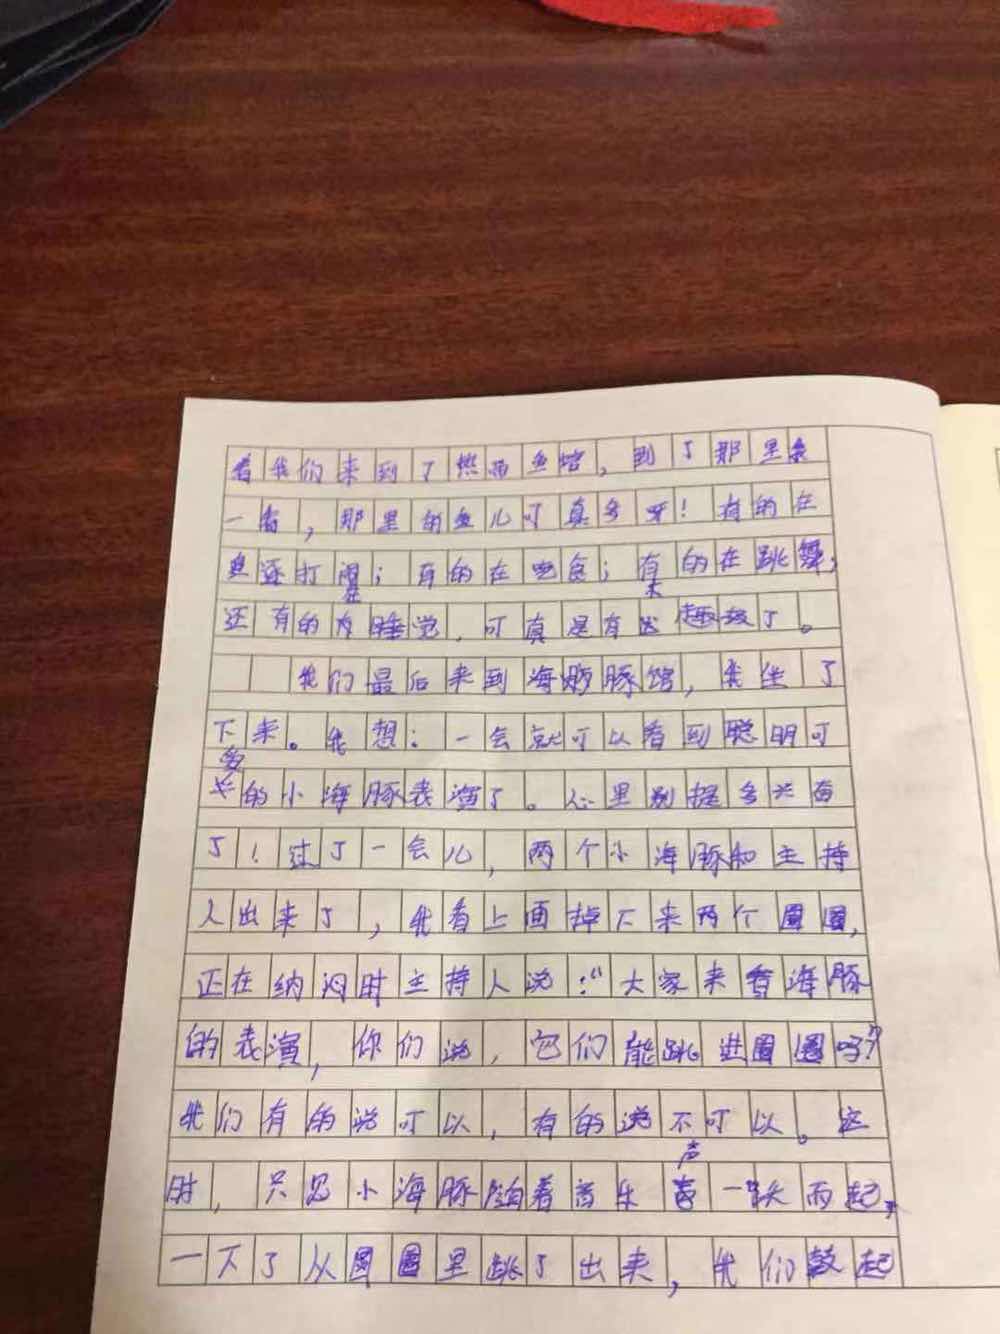 着我们来到了热带鱼馆，到了那里
一看，那里的鱼儿可真多呀！有的在
追逐打闹；有的在吃食；有的在跳舞；
还有的在睡觉，可真是有趣极了。
我们最后来到海豚馆，我坐了
下来。我想：一会就可以看到聪明可
爱的小海豚表演了。心里别提多兴奋
了！过了一会儿，两个小海豚和主持
人出来了，我看上面掉下来两个圆圈，
正在纳闷时主持人说：“大家来看海豚
的表演，你们说，它们能跳进圆圈吗？”
我们有的说可以，有的说不可以。这
时，只见小海豚随着音乐声一跃而起，
一下了从圆圈里跳了出来，我们鼓起